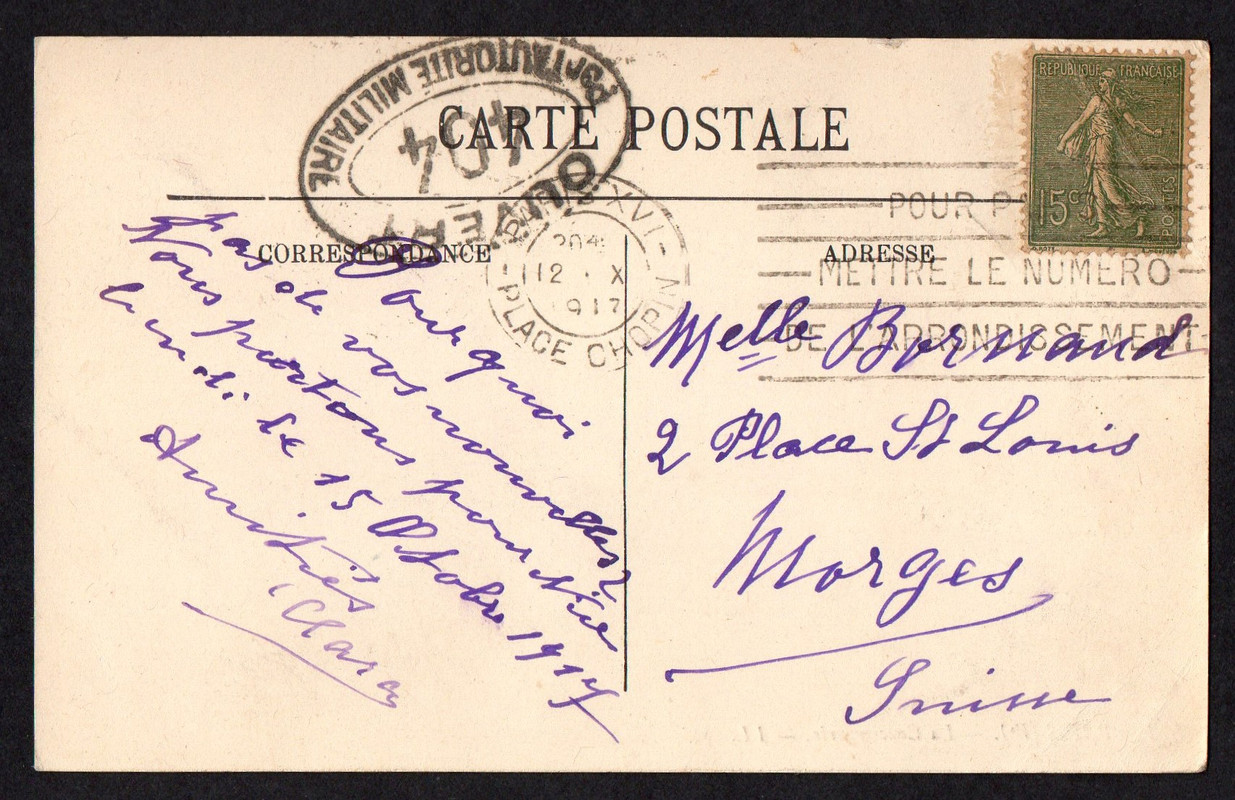 CARTE POSTALE
OUVERT
Par AUTORITÉ MILITAIRE
404
RÉPUBLIQUE FRANÇAISE
15c
POSTES
XVI
20
12 . X
917
PLACE CHOPIN
POUR P
METTRE LE NUMERO
DE L'ARRONDISSEMENT
CORRESPONDANCE
ADRESSE
Pourquoi
pas de vos nouvelles?
Nous partons pour Nice
lundi le 15 Octobre 1917
Amitiés
Clara
Melle Bornand
2 Place St Louis
Morges
Suisse